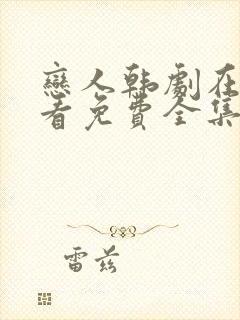 戀人韩劇在
看免費全集
雷兹